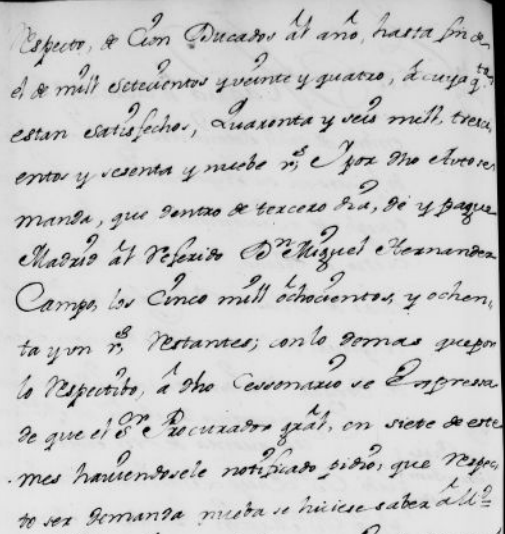 respecto, de Cien Ducados al año, hasta fin de
el de mill setecientos y veinte y quatro, â cuya q.ta
estan satisfechos, Quarenta y seis mill, tresci
entos y sesenta y nuebe r.s Y por dho Auto se
manda, que dentro de tercero dia, dé y pague
Madrid al referido D.n Miguel Hernandez
Campo, los Cinco mill ochocientos, y ochen
ta y vn r.s restantes; con lo demas que por
lo respectibo, â dho Cessonario se Expressa
de que el S.or Procurador gral, en siete de este
mes hauiendosele notificado pidio, que respec
to ser demanda nueba se hiciese saber â M.d